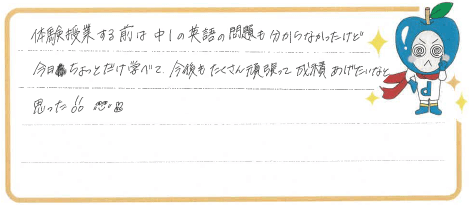 体験授業する前は中1の英語の問題も分からなかったけど
今日ちょっとだけ学べて、今後もたくさん頑張って成績あげたいなと
思った!!
d